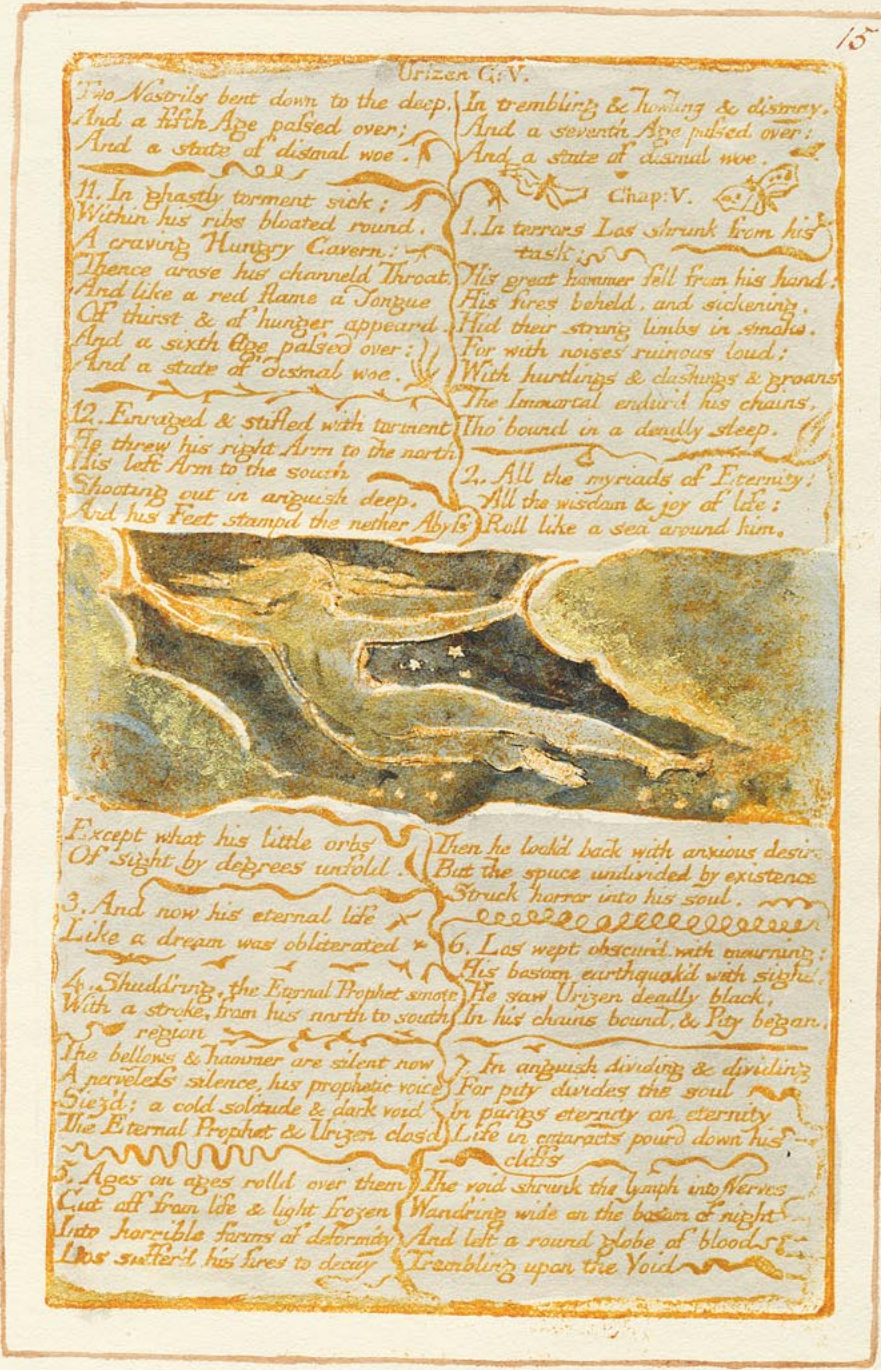 15
Urizen C: V.
Two Nostrils bent down to the deep.
And a fifth Age paſsed over;
And a state of dismal woe.
11. In ghastly torment sick;
Within his ribs bloated round,
A craving Hungry Cavern;
Thence arose his channeld Throat,
And like a red flame a Tongue
Of thirst & of hunger appeard.
And a sixth Age paſsed over:
And a state of dismal woe.
12. Enraged & stifled with torment
He threw his right Arm to the north
His left Arm to the south
Shooting out in anguish deep,
And his Feet stampd the nether Abyſs
In trembling & howling & dismay.
And a seventh Age paſsed over:
And a state of dismal woe.
Chap: V.
1. In terrors Los shrunk from his
task:
His great hammer fell from his hand:
His fires beheld, and sickening,
Hid their strong limbs in smoke.
For with noises ruinous loud;
With hurtlings & clashings & groans
The Immortal endur'd his chains,
Tho' bound in a deadly sleep.
2. All the myriads of Eternity:
All the wisdom & joy of life:
Roll like a sea around him,
Except what his little orbs
Of sight by degrees unfold.
3. And now his eternal life
Like a dream was obliterated
4. Shudd'ring, the Eternal Prophet smote
With a stroke, from his north to south
region
The bellows & hammer are silent now
A nerveleſs silence, his prophetic voice
Siez'd; a cold solitude & dark void
The Eternal Prophet & Urizen clos'd
5. Ages on ages rolld over them
Cut off from life & light frozen
Into horrible forms of deformity
Los suffer'd his fires to decay
Then he look'd back with anxious desire
But the space undivided by existence
Struck horror into his soul.
6. Los wept obscur'd with mourning:
His bosom earthquak'd with sighs;
He saw Urizen deadly black,
In his chains bound, & Pity began,
7. In anguish dividing & dividing
For pity divides the soul
In pangs eternity on eternity
Life in cataracts pourd down his
cliffs
The void shrunk the lymph into Nerves
Wand'ring wide on the bosom of night
And left a round globe of blood
Trembling upon the Void